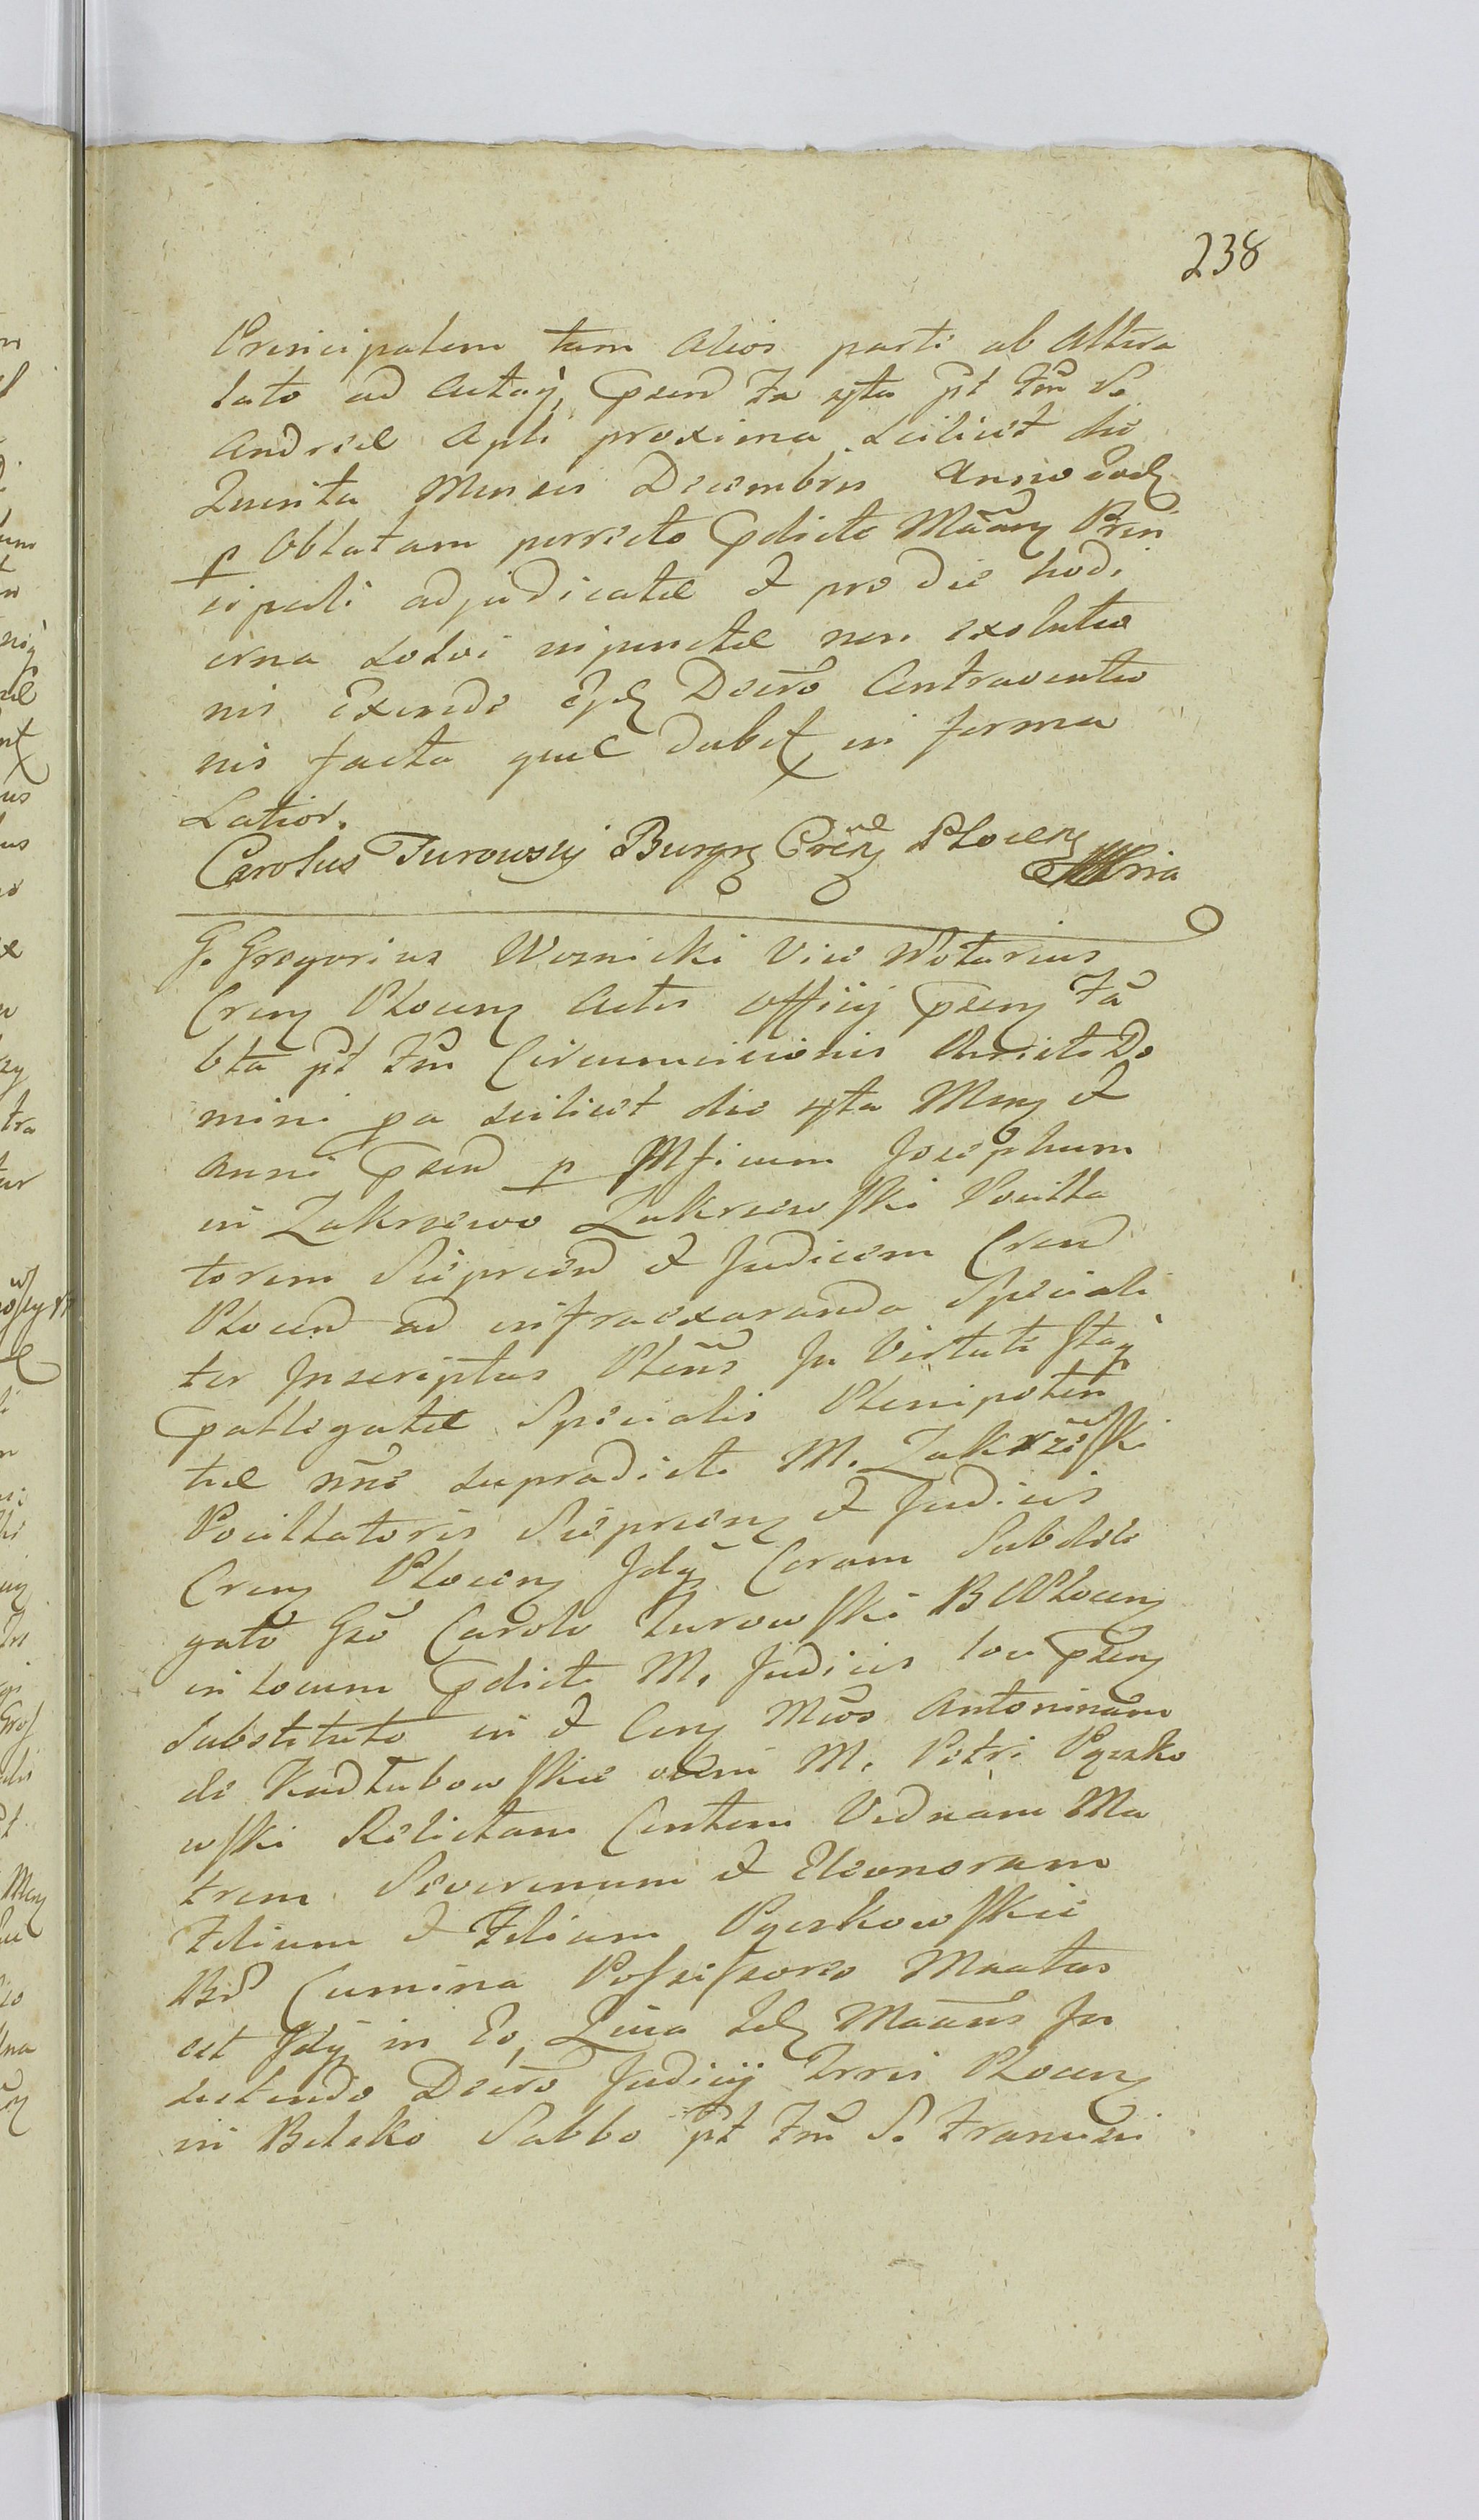 238
Principalem tam alios parti ab Altera
lato ad Actay, Pnsend Fa 4ta pt Fm S.
Andreæ Apli proxima scilicet die
Quinta Mensis Decembris Anno Eod
p Oblatam perrecto Pdicte Maany Prin
cipali adjudicatæ et pro die hodi
erna Solvi injunctæ non exolutio
nis Exinde Decro Contraventio
nis facta quæ dabit in forma
Latior.
Carolus Turowsky Burgr Crén Plocen mria
G. Gregorius Woznicki Vice Notarius
Cren Plocen Actis Officij Psen Fa
bta pt Fm Circumcisionis Christi Do
mini pa scilicet die 4ta Mens et
Anni Psend p Mficum Josephum
in Zakrzewo Zakrzewski Pocilla
torem Sieprcen et Judicem Crend
Plocen ad infraexaranda Speciali
ter Inscriptus Plens In Virtute
Pallegatæ Specialis Plenipoten
tiæ nne supradicti M. Zakrzewski
Pocillatoris Sieprcen et Judicis
Cren Plocen Idq Coram Subdele
gato Gso Carolo Turowski B C Plocen
in locum Pdicti M. Judicis loci Psen
Substituto in et Con Mcos Antoninam
de Kadłubowskie olim M. Petri Pączko
wski Relictam Contem Viduam Ma
trem Severinum et Eleonoram
Filium et Filiam Pączkowskie
BS Cumina Possessores Mrratus
est Idq in Eo, Quia Maans In
sectendo Decro Judicij Trris Plocen
in Bielsko Sabbo pt Fm S. Francisci